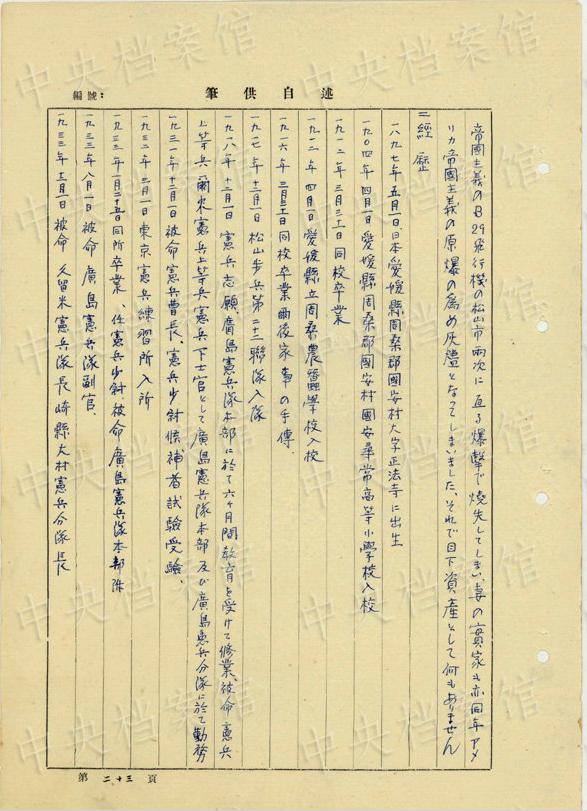 編號：
述自供筆
帝國主義のB29飛行機の松山市兩次に亘る爆撃で燒失してしまい、妻の實家も亦同年アメ
リカ帝國主義の原爆の為め灰燼となってしまいました、それで目下資產として何もありません
二 經歷
一八九七年五月一日、日本愛媛縣周桑郡國安村大字正法寺に出生
一九〇四年四月一日愛媛縣周桑郡國安村國安尋常高等小學校入校
一九一二年三月三十一日同校卒業
一九一二年四月愛媛縣立周桑農蠶學校入校
一九一六年三月三十一日同校卒業爾後家事の手傳、
一九一七年十二月一日松山步兵第二十二聯隊入隊
一九一八年十二月一日憲兵志願、廣島憲兵隊本部に於て六ヶ月間教育を受けて修業、被命憲兵
上等兵、爾來憲兵上等兵憲兵下士官として廣島憲兵隊本部及び廣島憲兵分隊に於て勤務
一九三一年十二月一日被命憲兵曹長、憲兵少尉候補者試驗受驗、
一九三二年三月一日東京憲兵練習所入所
一九三三年一月二十五日同所卒業、任憲兵少尉被命廣島憲兵隊本部附
一九三三年八月一日被命廣島憲兵隊副官、
一九三三年三月一日被命久留米憲兵隊長崎縣大村憲兵分隊長
第二十三頁
中央档案馆